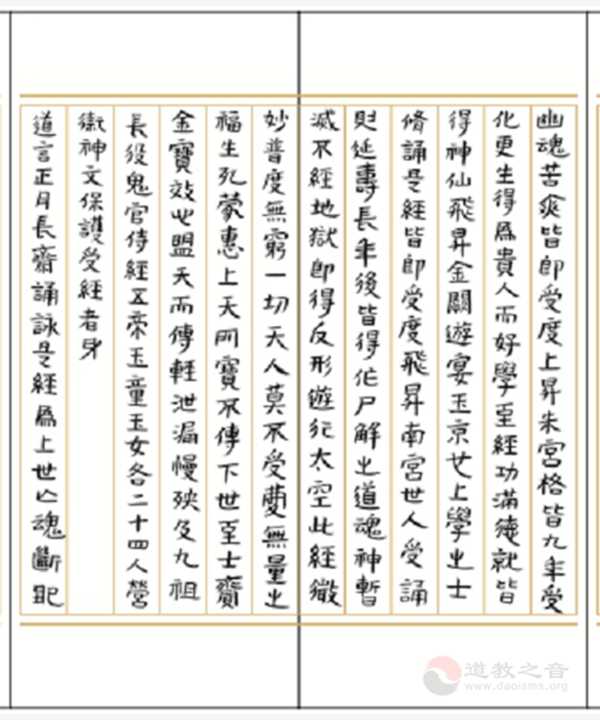 幽魂苦爽皆即受度上昇朱宮格皆九年受
化更生得為貴人而好學至經功滿德就皆
得神仙飛昇金闕遊宴玉京也上學之士
脩誦是經皆即受度飛昇南宮世人受誦
則延壽長年後皆得作尸解之道魂神暫
滅不經地獄即得反形遊行太空此經微
妙普度無窮一切天人莫不受慶無量之
福生死蒙惠上天所寶不傳下世至士齎
金寶效心盟天而傳輕泄漏慢殃及九祖
長役鬼官侍經五帝玉童玉女各二十四人營
衛神文保護受經者身
道言正月長齋誦詠是經為上世亡魂斷地
道教之音
www.daoisms.org